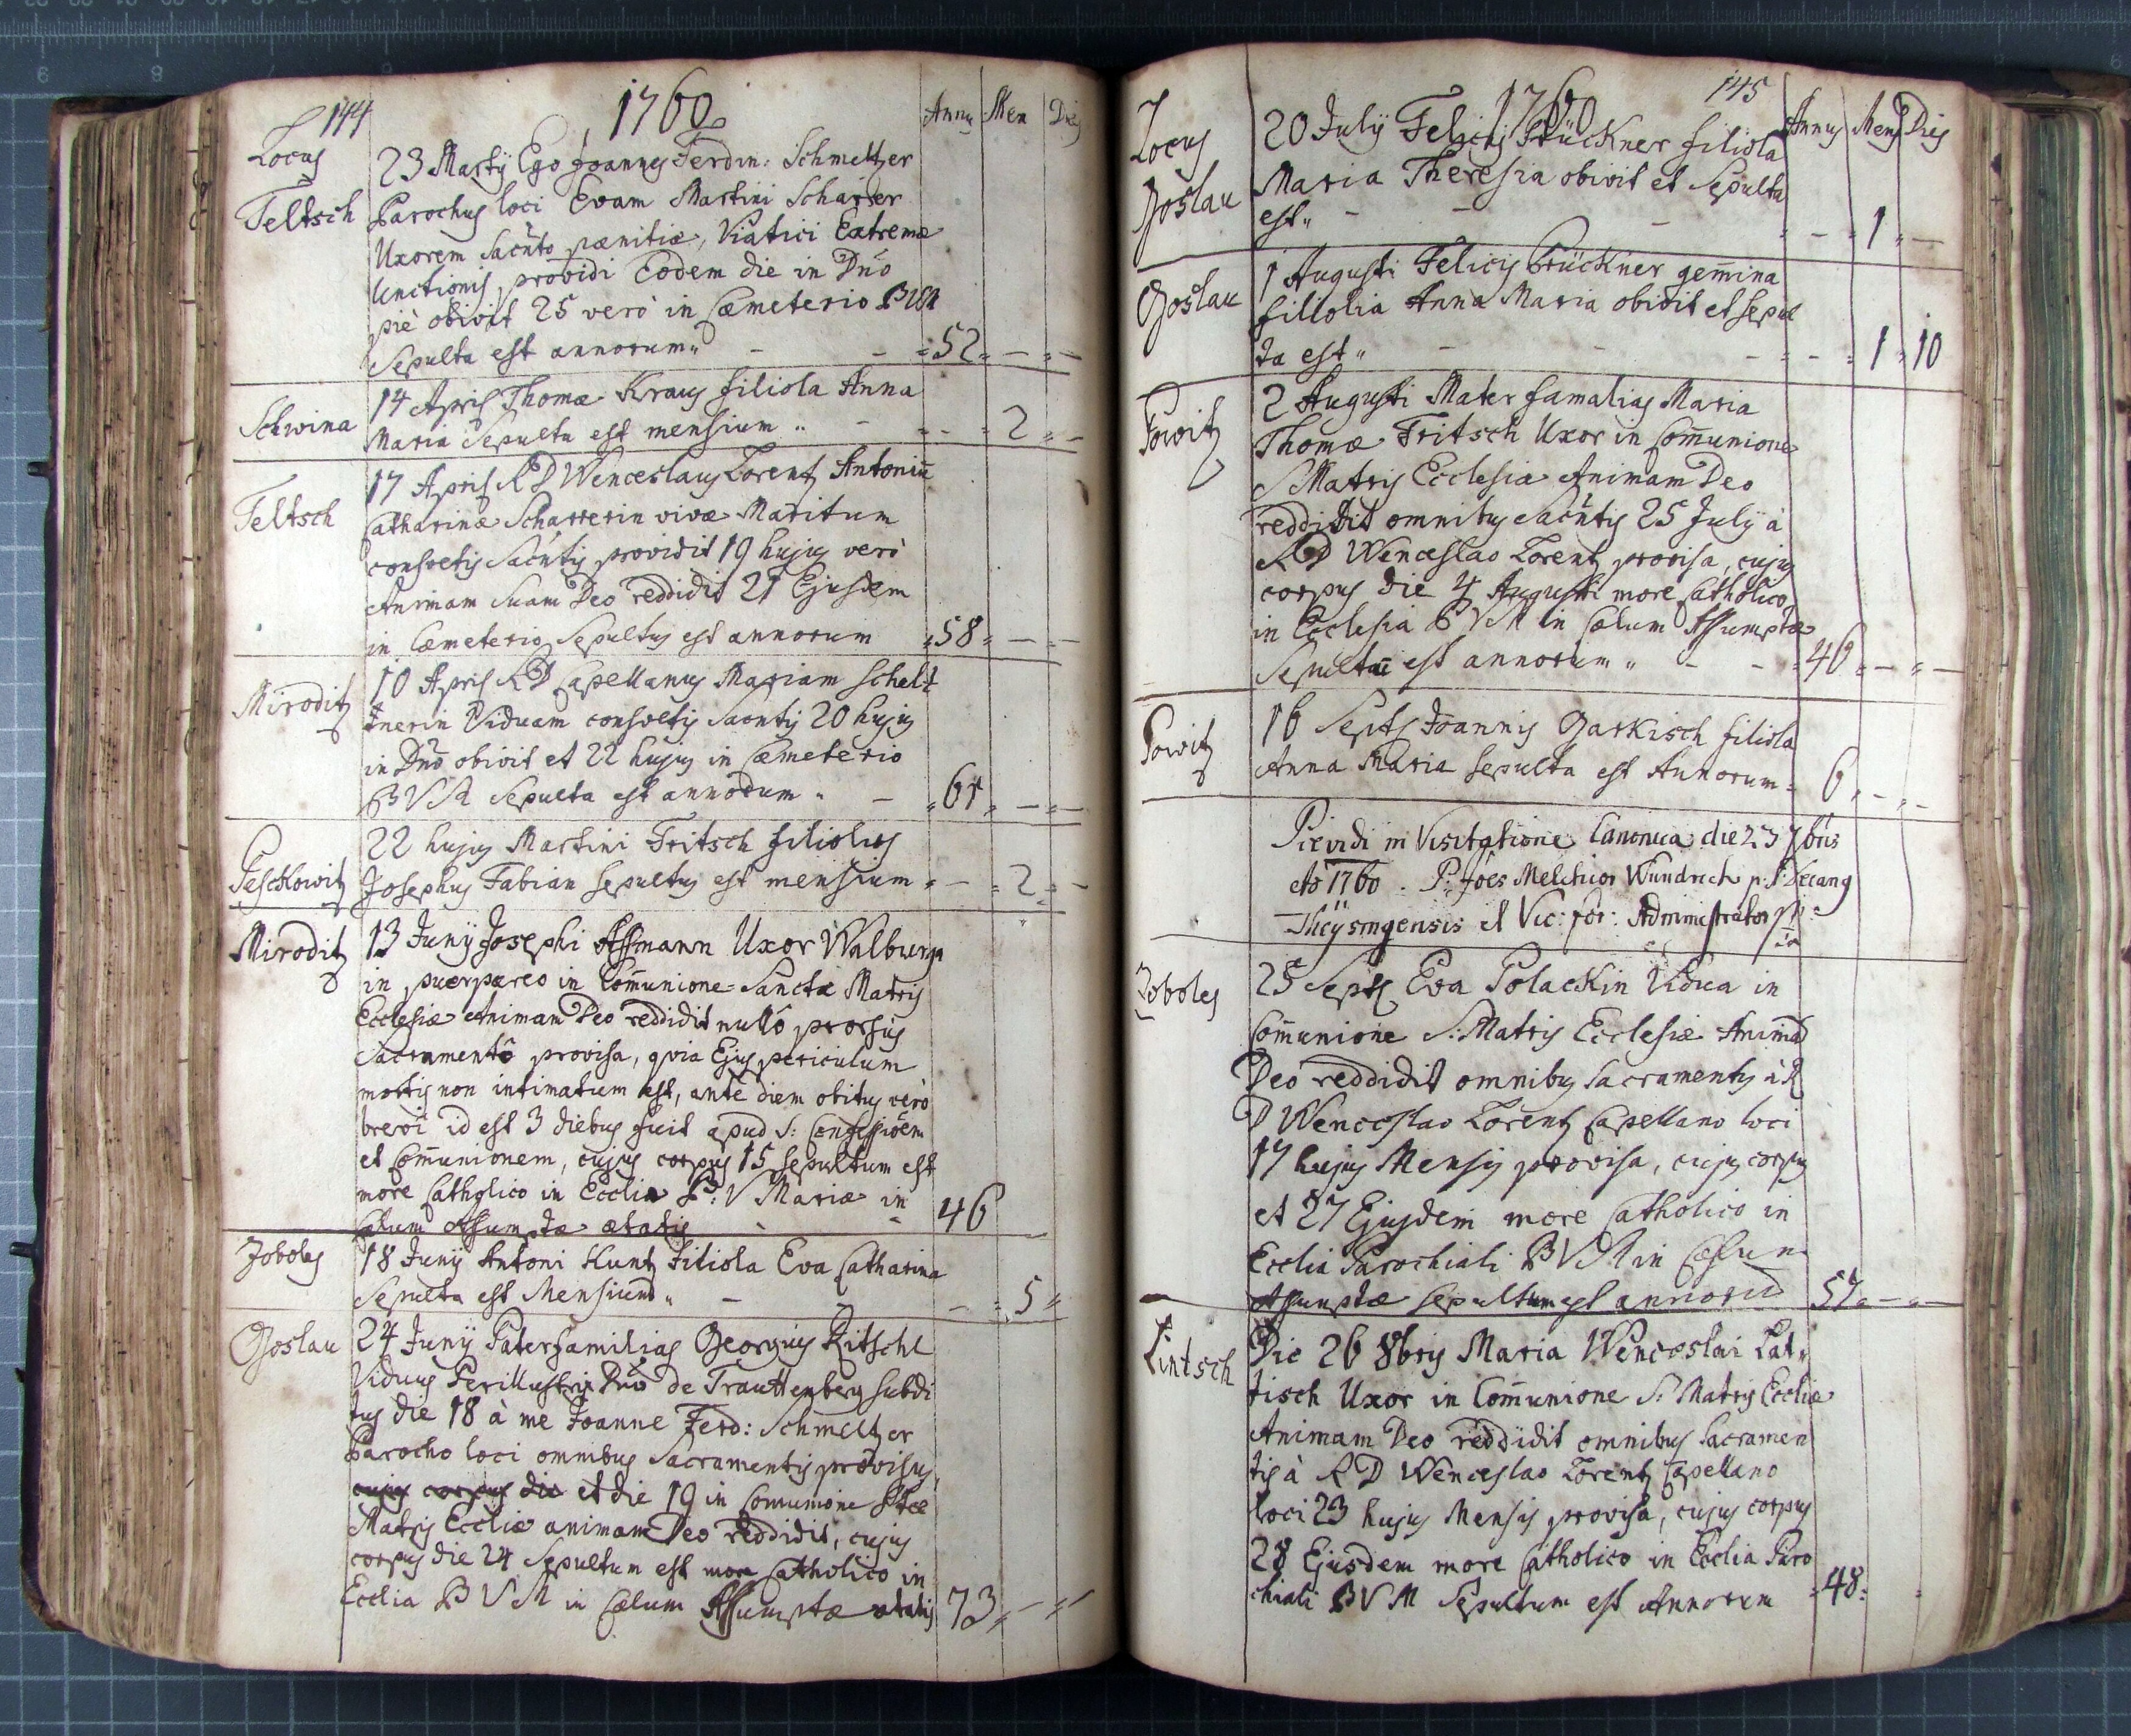 144
1760
Annu Men Dies
Locus
23 Martij Ego Joannes Ferdin: Schmeltzer
Teltsch Parochus loci Evam Martini Scharrer
Uxorem Sacnto pænitiæ, Viatici Extremæ
Unctionis providi Eodem die in Dno
piè obivit 25 verò in Cæmeterio BVM
Sepulta est annorum „ – – 52 „ – „ –
14 April Thomæ Kraus filiola Anna
Schwina Maria Sepulta est mensium „ – 2 „ –
17 April RD Wenceslaus Lorentz Antoniū
Teltsch Catharinæ Scharrerin vivæ Maritum
consvetis Sacntis providit 19 hujus verò
Animam Suam Deo reddidit 21 Ejusdem
in Cæmeterio Sepultus est annorum 58 „ – „ –
10 April RD Capellanus Mariam Schelt
Miroditz tnerin Viduam consvetis Sacntis 20 hujus
in Dno obivit et 22 hujus in Cæmeterio
BVM Sepulta est annorum „ – 61 „ – „ –
22 hujus Martini Fritsch filiolus
Peschkowitz Josephus Fabian Sepultus est mensium „ – 2 „ –
Miroditz 13 Junij Josephi Assmann Uxor Walburga
in puerpereo in Com̄unione Sanctæ Matris
Ecclesiæ Animam Deo reddidit nullô prorsus
Sacramentô provisa, qvia Ejus periculum
mortis non intimatum est, ante diem obitus verò
brevi id est 3 diebus fuit apud S: Confessiōem
et Com̄unionem, cujus corpus 15 Sepultum est
more Catholico in Ecclia B: V Mariæ in
Cælum Assumptæ ætatis 46
Joboles 18 Junij Antoni Kuntz Filiola Eva Catharina
Sepulta est Mensium „ – – 5 „
Goslau 24 Junij Paterfamilias Georgius Ritschl
Viduus Perillustris Dni de Trauttenberg Subdi
tus die 18 à me Joanne Ferd: Schmeltzer
Parocho loci omnibus Sacramentis provisus,
cujus corpus die et die 19 in Comunione Stæ
Matris Eccliæ animam Deo reddidit, cujus
corpus die 24 Sepultum est more Catholico in
Ecclia BVM in Cælum Assumptæ ætatis 73 „ – „
145
1760
Annus Mens Dies
Locus
20 Julij Felicis Brückner filiola
Goslau Maria Theresia obivit et Sepulta
est „ – – – – 1 „ –
1 Augusti Felicis Brückner gem̄ina
Goslau fillolia Anna Maria obivit et sepul
ta est „ – – – – 1 „ 10
2 Augusti Mater famalias Maria
Powitz Thomæ Fritsch Uxor in Com̄unione
S Matris Ecclesiæ Animam Deo
reddidit omnibus Sacntis 25 Julij à
RD Wenceslao Lorentz provisa, cujus
corpus die 4 Augusti more Catholico
in Ecclesia BVM in Cælum Assumptæ
Sepultum est annorum „ – – 46 „ – „ –
16 Septs Joannis Garkisch filiola
Powitz Anna Maria sepulta est Annorum 6 „ – „ –
Prævidi in Visitatione Canonica die 23 7bris
Ao 1760 . P: Jões Melchior Wundrich p. t. Decang
Theysingensis et Vic: for: Administrator
Joboles 25 Septs Eva Polackin Vidua in
Com̄unione S: Matris Ecclesiæ Animā
Deo reddidit omnibus Sacramentis à R
D Wenceslao Lorentz Capellano loci
17 hujus Mensis provisa, cujus corpus
et 27 Ejusdem more Catholico in
Ecclia Parochiali BVM in Cælum
Assumptæ sepultum est annorum 57 „ – „ –
Lintsch Die 26 8bris Maria Wenceslai Lat„
tisch Uxor in Com̄unione S: Matris Eccliæ
Animam Deo reddidit omnibus Sacramen
tis à RD Wenceslao Lorentz Capellano
loci 23 hujus Mensis provisa, cujus corpus
28 Ejusdem more Catholico in Ecclia Paro
chiali BVM Sepultum est Annorum 48